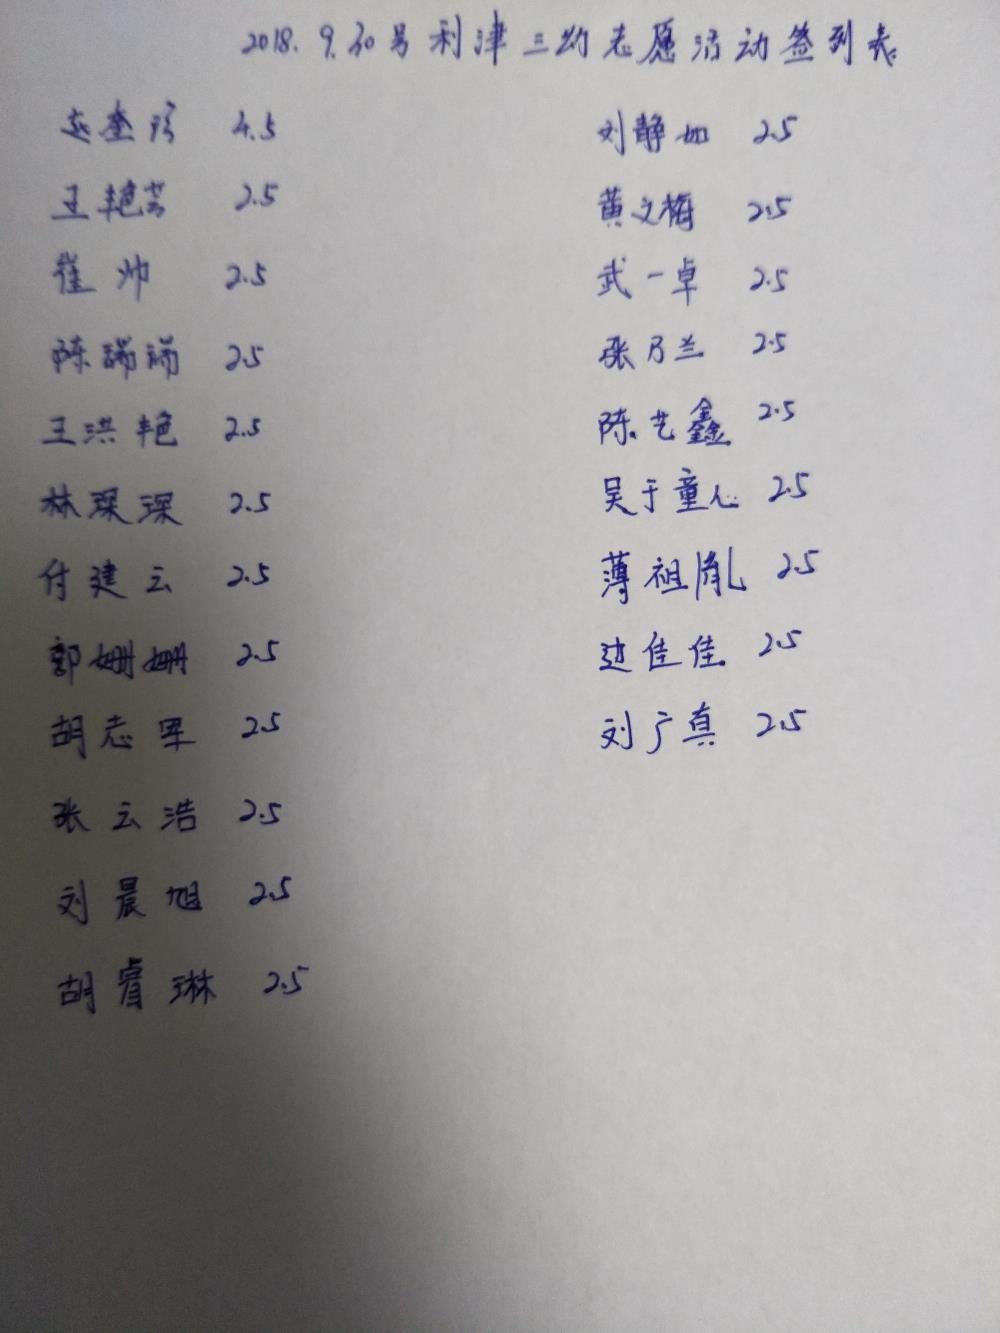 2018.9.30号利津三幼志愿活动签到表
赵奎珍 4.5
王艳芸 2.5
崔帅 2.5
陈瑞瑞 2.5
王洪艳 2.5
林琛琛 2.5
付建云 2.5
郭姗姗 2.5
胡志军 2.5
张云浩 2.5
刘晨旭 2.5
胡睿琳 2.5
刘静如 2.5
黄文梅 2.5
武一卓 2.5
张乃兰 2.5
陈艺鑫 2.5
吴于童心 2.5
薄祖胤 2.5
边佳佳 2.5
刘广真 2.5